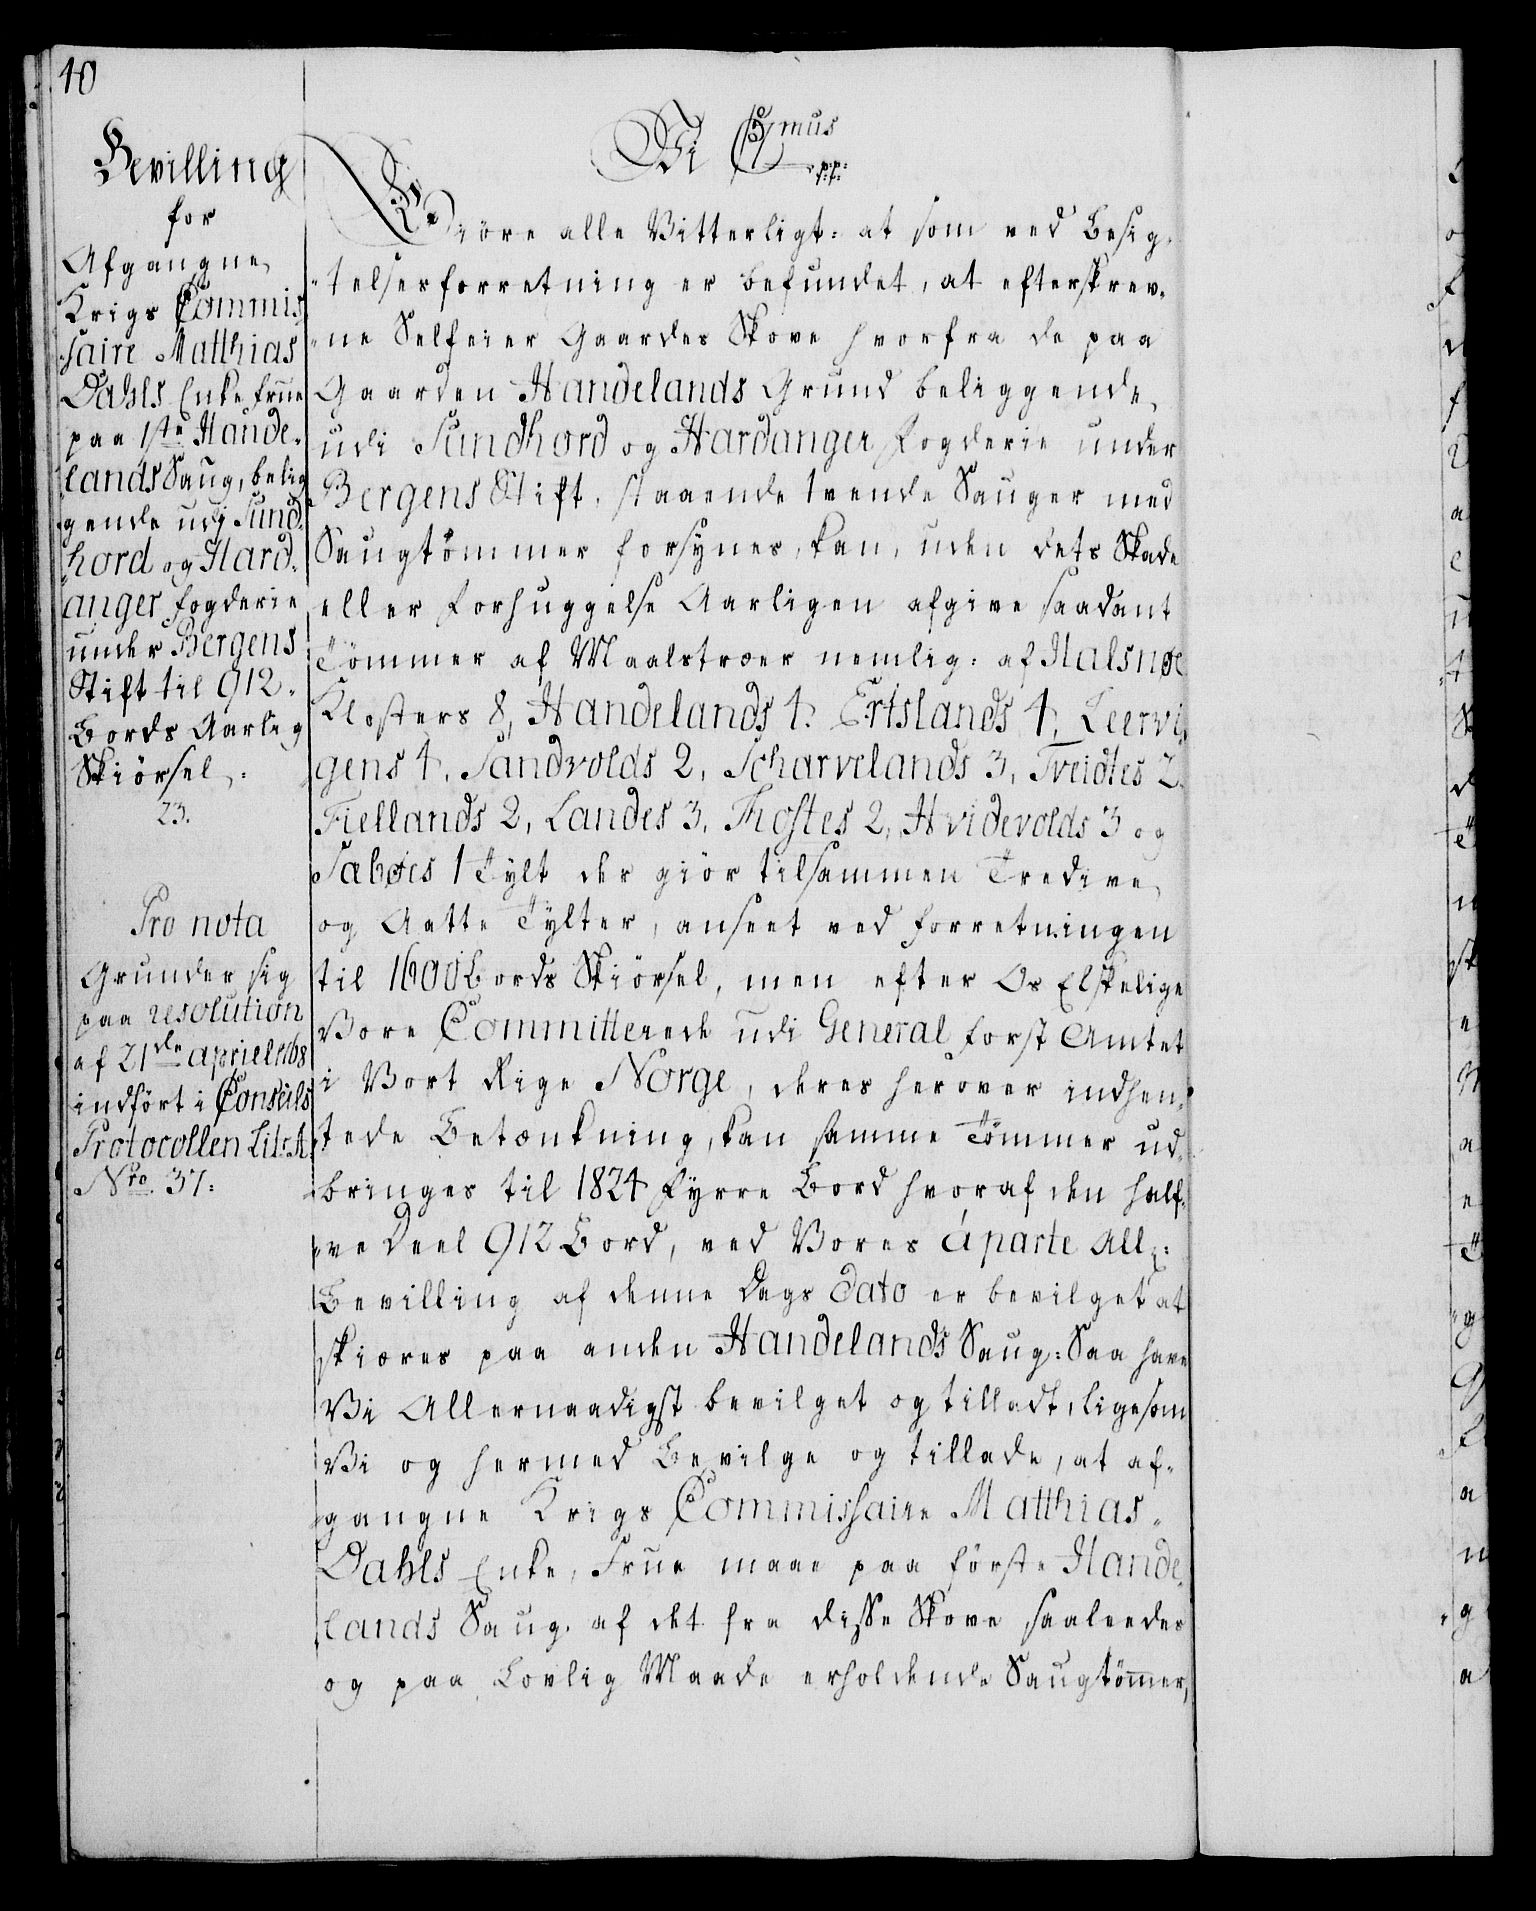 40
Bevilling
for
Afgangne
Krigs Commis
saire Matthias
Dahls Enke Frue
paa 1ste Hande-
lands Saug, belig
gende udj Sund-
hord og Hard-
anger fogderie
under Bergens
Stift til 912.
Bords Aarlig
Skiørsel.
23.
Pro nota
Grunder sig
paa resolution
af 21de april 1768
indført i Conseils
Protocollen Lit: A.
Nro. 37:
Vi Cmus
p:p:
Giöre alle Vitterligt: at som ved Besig-
telsesforretning er befundet, at efterskrev-
ne Selfeier Gaardes Skove hvorfra de paa
Gaarden Handelands Grund beliggende
udi Sundhord og Hardanger Fogderie under
Bergens Stift, staaende tvende Sauger med
Saugtömmer forsynes, kan, uden dets Skade
eller Forhuggelse Aarligen afgive saadant
Tömmer af Maalstræer nemlig: af Halsnøe
Klosters 8, Handelands 4. Ertslands 4, Leervi-
gens 4, Sandvolds 2, Scharvelands 3, Tveidtes 2.
Fiellands 2, Landes 3, Thostes 2, Hvidevolds 3 og
Sabøes 1 Tylt der giör tilsammen Tredive
og Aatte Tylter, anseet ved forretningen
til 1600 Bords Skiörsel, men efter Os Elskelige
Vore Committerede udi General Forst Amtet
i Vort Rige Norge, deres herover indhen-
tede Betænkning, kan samme Tömmer ud-
bringes til 1824 Fyrre Bord hvoraf den half-
ve Deel 912 Bord, ved Vores áparte All:
Bevilling af denne Dags Dato er bevilget at
skiæres paa anden Handelands Saug: Saa have
Vi Allernaadigst bevilget og tilladt, ligesom
Vi og hermed Bevilge og tillade, at af-
gangne Krigs Commissaire Matthias
Dahls Enke, Frue maae paa förste Hande-
lands Saug. af det fra disse Skove saaleedes
og paa Lovlig Maade erholdende Saugtömer,